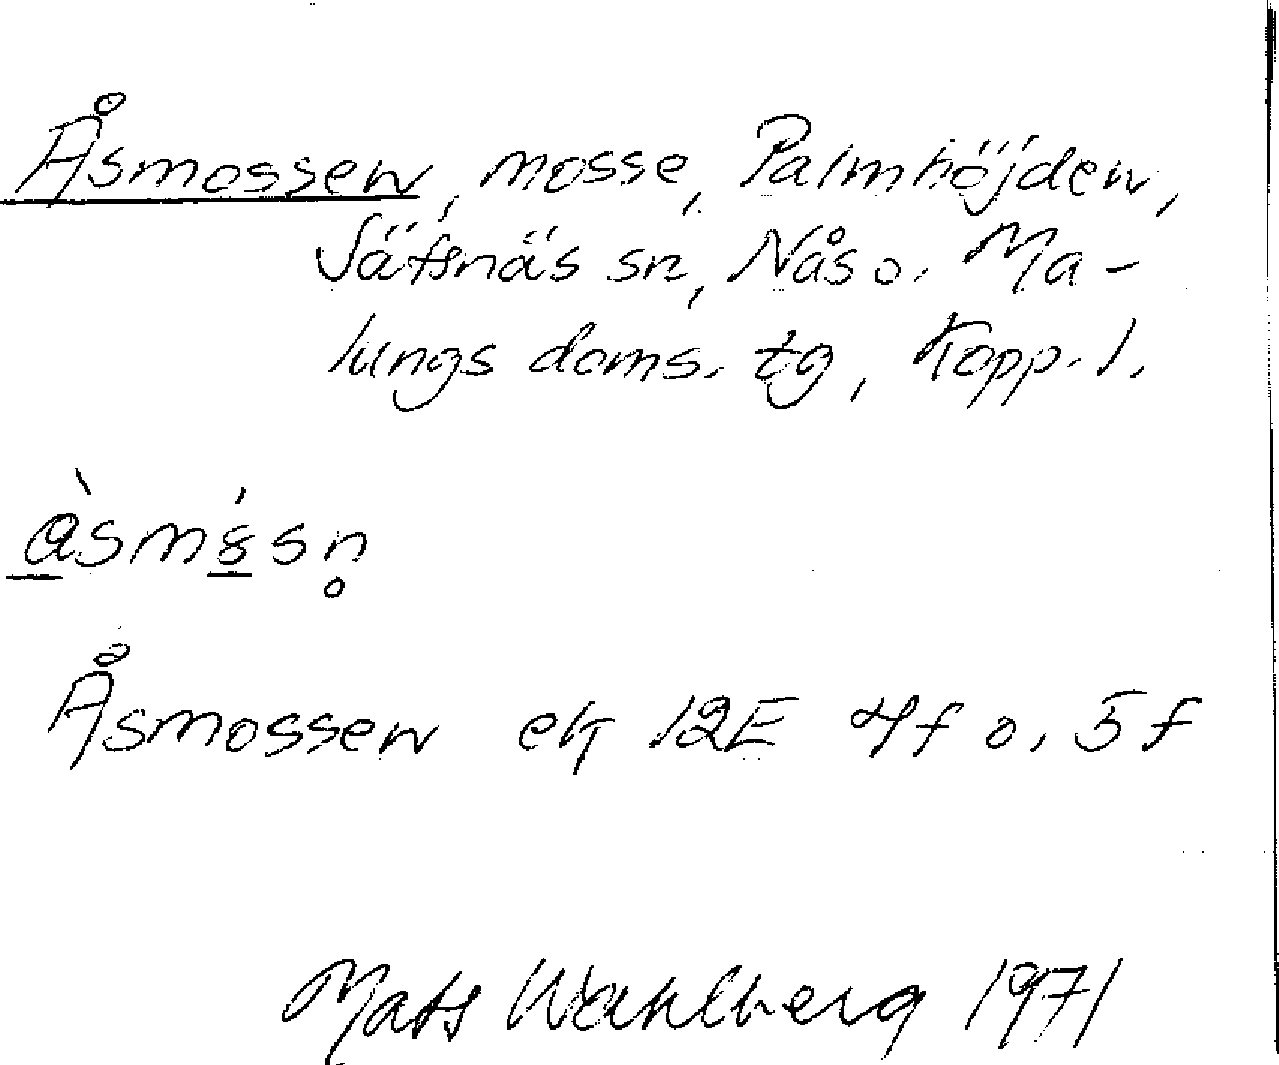 Åsmossen, mosse, Palmhöjden,
Säfsnäs sn, Nås o. Ma-
lungs doms. tg, Kopp. l.
Åsmossen ek 12E 4f o. 5f
Mats Wahlberg 1971